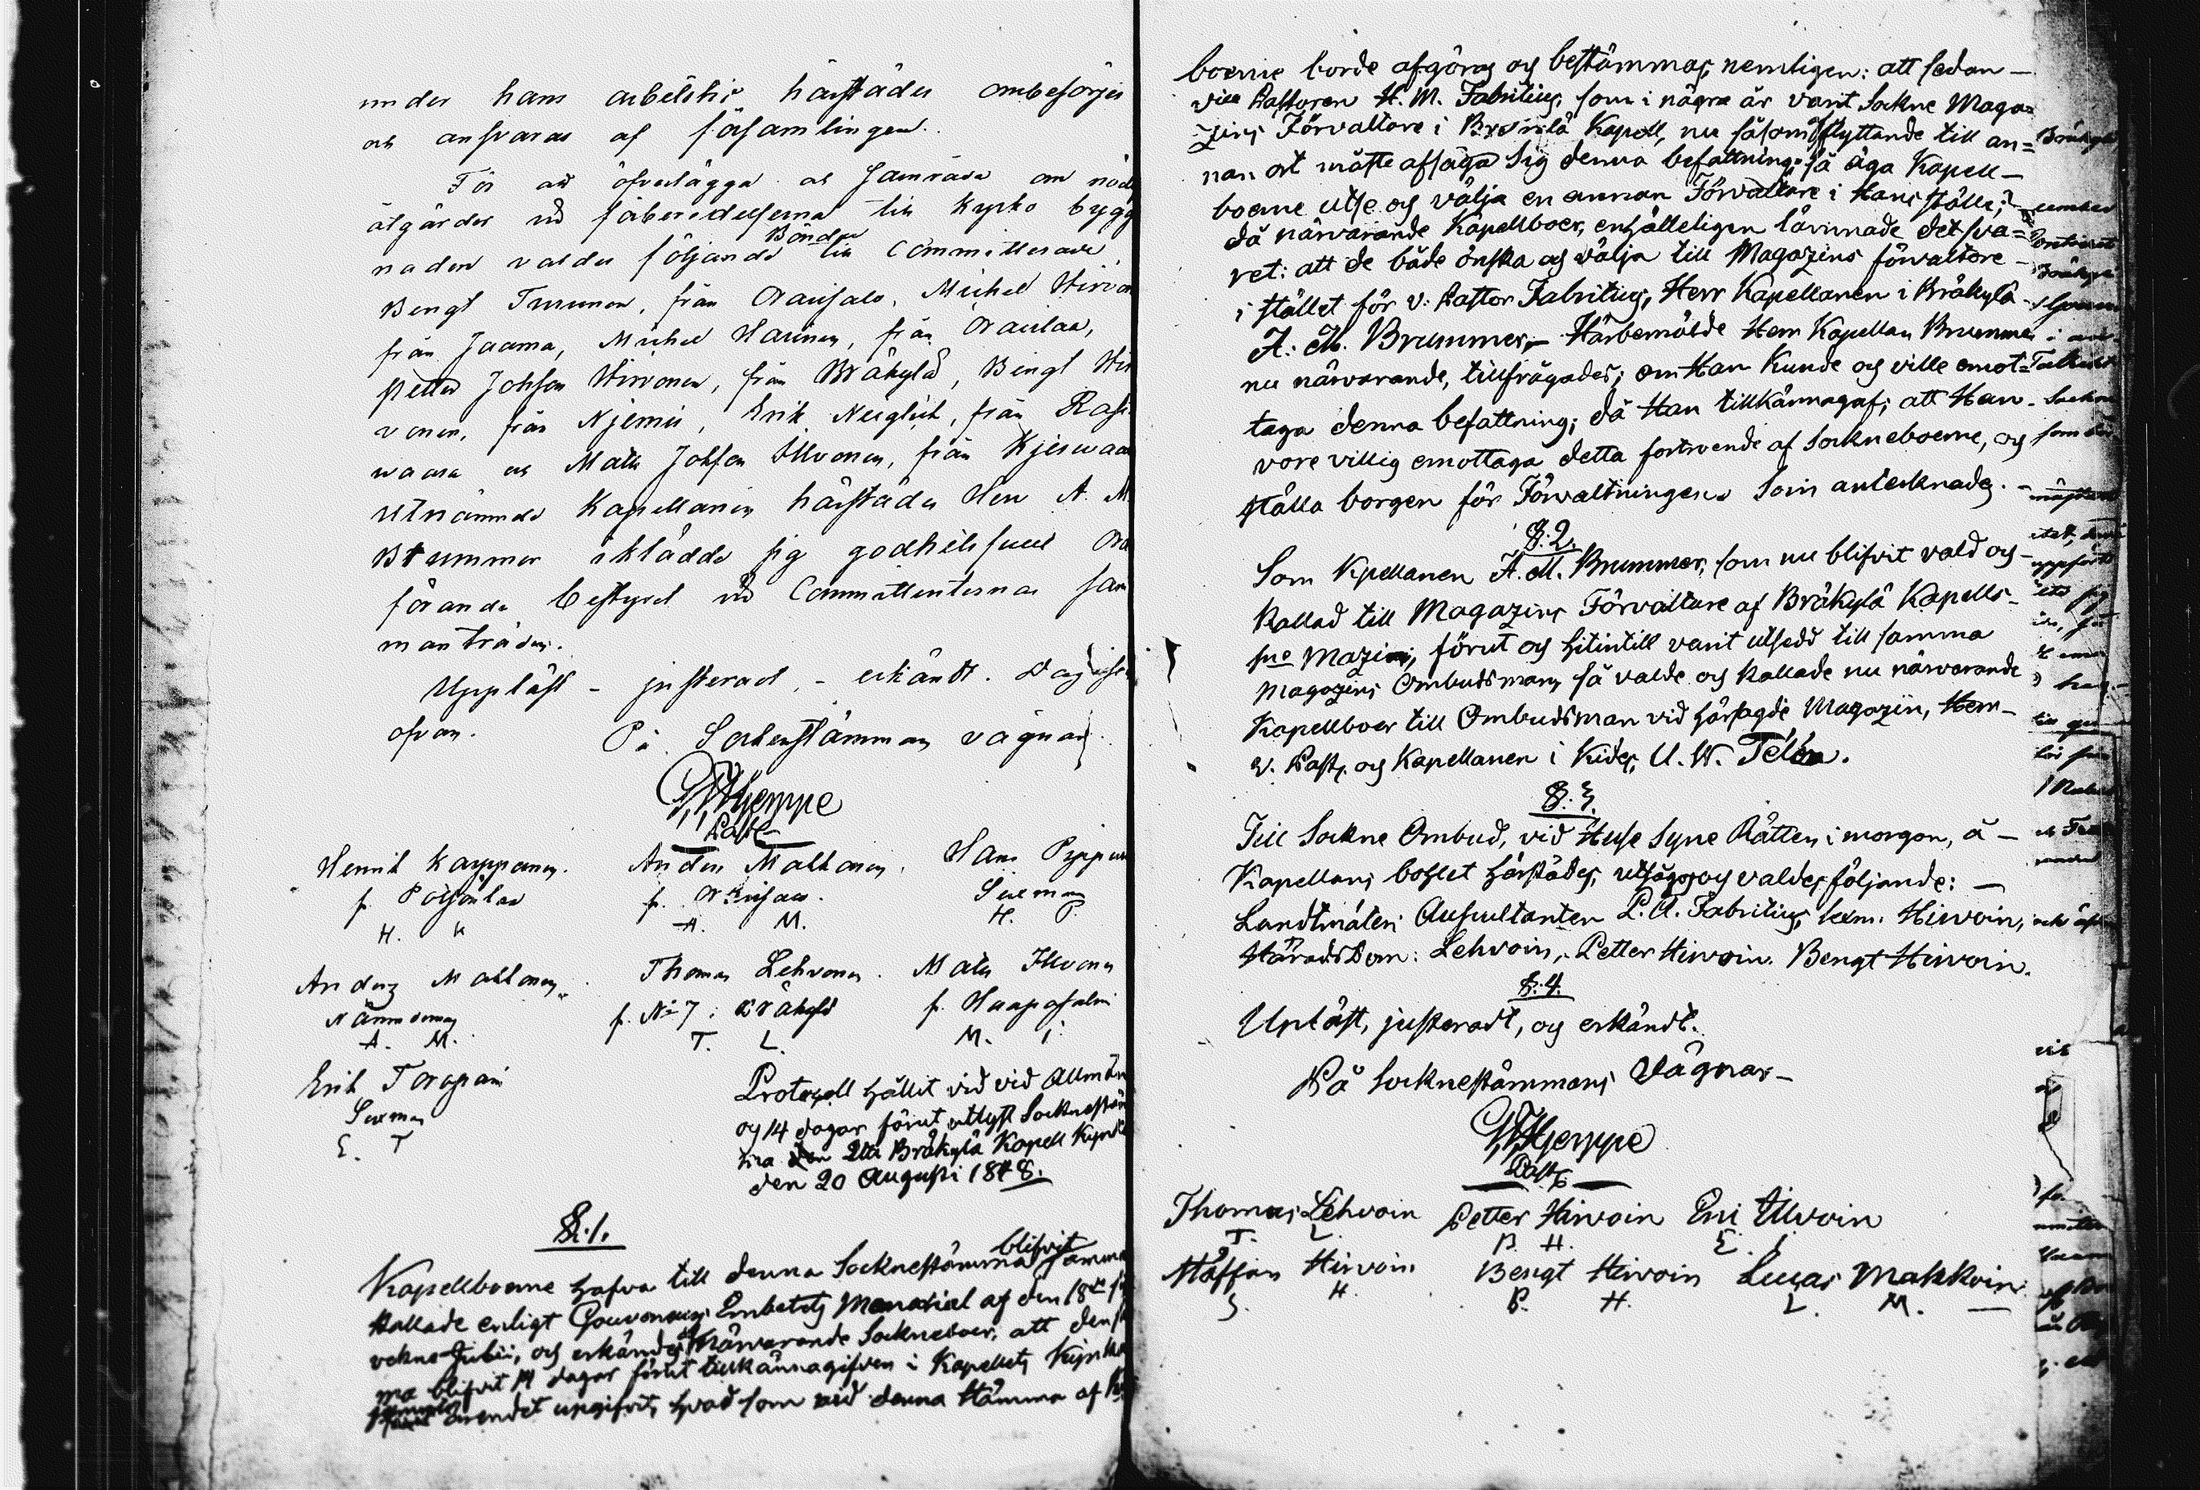 under hans arbetstid härstädes ombesörjes
och ansvaras af församlingen.
För att öfverlägga och samråda om nöd
åtgärder vid förberedelserna till kyrko bygg
naden valdes följande Bönder till Committerade
Bengt Turunen, från Oravisalo, Michel Hirvon
från Jaama, Michel Harinen, från Oravilax,
Petter Johsson Hirvonen, från Bräkylä, Bengt Hir
vonen, från Njemis, Erik Neuglick, från Rasi
waara och Mats Johsson Illvonen, från Kjeswaara
Utnämnde Kapellanen härstädes Herr A. M.
Brummer iklädde sig godhetsfullt Ord
förande bestyret vid Committenternas sam
manträden.
Uppläst - justerad - erkändt. Dag som
ofvan.
På Sockenstämmans vägnar
G. W. Hjerppe
Past.
Henrik Karppanen Anders Makkonen Hans Pippun
fr. Potoskalax fr. Oravisalo Sexman
H. K A. M. H. P.
Anders Makkonen Thomas Lehvonen Mats Illvonen
Nämndeman fr. No 7 Bräkylä fr. Haapasalmi
A. M. T. L. M. I.
Erik Toropain
Sexman
E. T
Protocoll hållit vid vid Allmän
og 14 dagar förut utlyst Socknestäm
ma den Uti Bräkylä Kapell Kyrka
den 20 Augusti 1848.
§.1.
Kapellboerne hafva till denna Socknestämma blifvit samman
kallade enligt Gouvernörs Embetets Memorial af den 18de
vekne Julii, og erkändes af närvarande Sockneboer, att denna
ma blifvit 14 dagar förut tillkännagifven i Kapellets Kyrka
jemväl ärendet upgifvit, hvad som vid denna Stämma af
boerne borde afgöras og bestämmas, nemligen: att sedan
vice Pastoren H. M. Fabritius, som i några år varit Sockne Maga=
zins Förvaltare i Bräkylä Kapell, nu såsom afflyttande till an=
nan ort måste afsäga sig denna befattning, så äga Kapell-
boerne utse og välja en annan Förvaltare i Hans ställe;
då närvarande Kapellboer, enhälleligen lämnade det sva=
ret: att de både önska og välja till Magazins förvaltare
i stället för v. Pastor Fabritius, Herr Kapellanen i Bräkylä
A. M. Brummer, - Härbemälde Herr Kapellan Brummer
nu närvarande, tillfrågades; om Han Kunde og ville emot=
taga denna befattning; då Han tillkännagaf; att Han
vore villig emottaga detta förtroende af Sockneboerne, og
ställa borgen för Förvaltningen. Som antecknades.
§.2.
Som Kpellanen A. M. Brummer, som nu blifvit vald og
kallad till Magazins Förvaltare af Bräkylä Kapells
sne Mazins, förut og hitintill varit utsedd till samma
Magazins Ombudsman, så valde og kallade nu närvarande
Kapellboer till Ombudsman vid härsagde Magazin, Herr
v. Past. og Kapellanen i Kides, U. W. Telén.
§.3.
Till Sockne Ombud, vid Huse Syne Rätten i morgon, å
Kapellans bohlet härstädes, utsågos og valdes följande:
Landtmäteri Auscultanten P. A. Fabritius, Sexm. Hirvoin,
Häradsdom: Lehvoin, Petter Hirvoin. Bengt Hirvoin.
§.4.
Upläst, justeradt, og erkändt.
På Socknestämmans Vägnar
G. W. Hjerppe
Past.
Thomas Lehvoin Petter Hirvoin Eric Illvoin
T. L. P. H. E. I.
Staffan Hirvoin Bengt Hirvoin Lucas Makkoin
S. H. B. H. L. M.